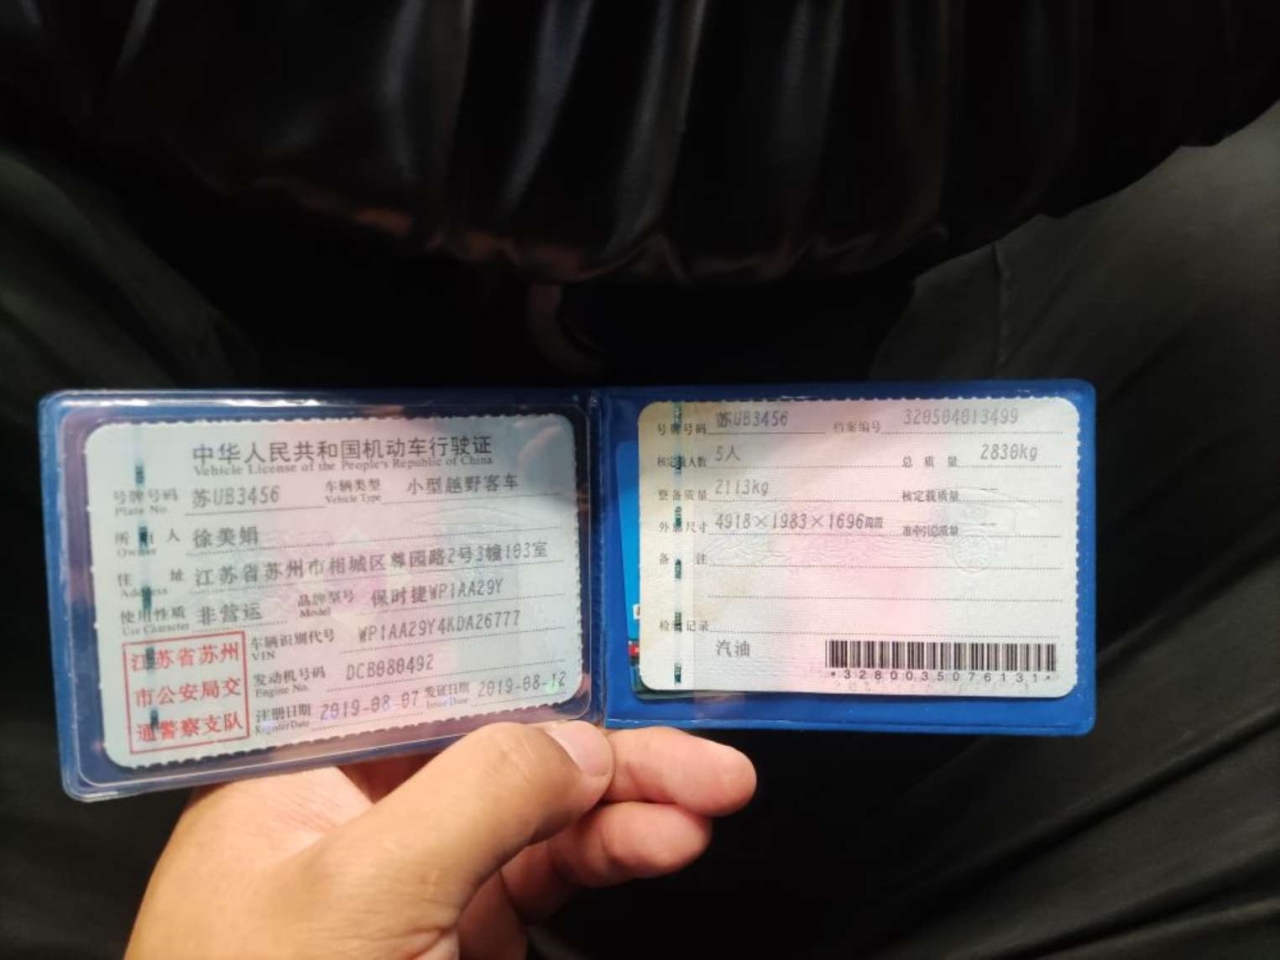 中华人民共和国机动车行驶证
Vehicle License of the People's Republic of China
号牌号码 苏UB3456 车辆类型 小型越野客车
Plate No. Vehicle Type
所有人 徐美娟
Owner
住址 江苏省苏州市相城区尊园路2号3幢103室
Address
使用性质 非营运 品牌型号 保时捷WP1AA29Y
Use Character Model
江苏省苏州
市公安局交
通警察支队
车辆识别代号 WP1AA29Y4KDA26777
VIN
发动机号码 DCB080492
Engine No.
注册日期 2019-08-07 发证日期 2019-08-12
Register Date Issue Date
号牌号码 苏UB3456 档案编号 320504013499
核定载人数 5人 总质量 2830kg
整备质量 2113kg 核定载质量 --
外廓尺寸 4918×1983×1696mm 准牵引总质量 --
备注
检验记录
汽油
*3280035076131*